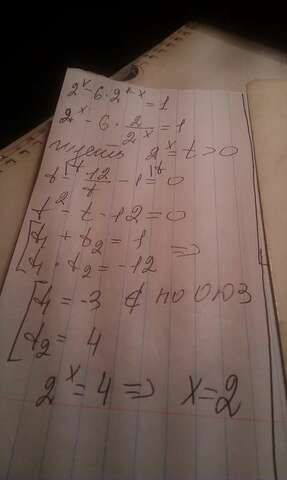 2^x - 6 · 2^(1-x) = 1
2^x - 6 · 2/2^x = 1
пусть 2^x = t > 0
t^(|t) - 12/t - 1^(|t) = 0
t² - t - 12 = 0
[ t₁ + t₂ = 1 =>
[ t₁ · t₂ = -12
[ t₁ = -3 ∉ по ОДЗ
[ t₂ = 4
2^x = 4 => x = 2